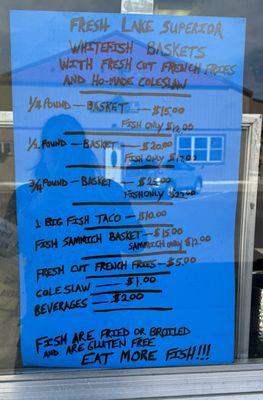 FRESH LAKE SUPERIOR
WHITEFISH BASKETS
WITH FRESH CUT FRENCH FRIES
AND HO-MADE COLESLAW
1/4 POUND - BASKET - $15.00
FISH ONLY $12.00
1/2 POUND - BASKET - $20.00
FISH ONLY $17.00
3/4 POUND - BASKET - $25.00
FISH ONLY $22.00
1 BIG FISH TACO - $10.00
FISH SAMMICH BASKET - $15.00
SAMMICH ONLY $12.00
FRESH CUT FRENCH FRIES - $5.00
COLESLAW - $1.00
BEVERAGES - $2.00
FISH ARE FRIED OR BROILED
AND ARE GLUTEN FREE
EAT MORE FISH!!!